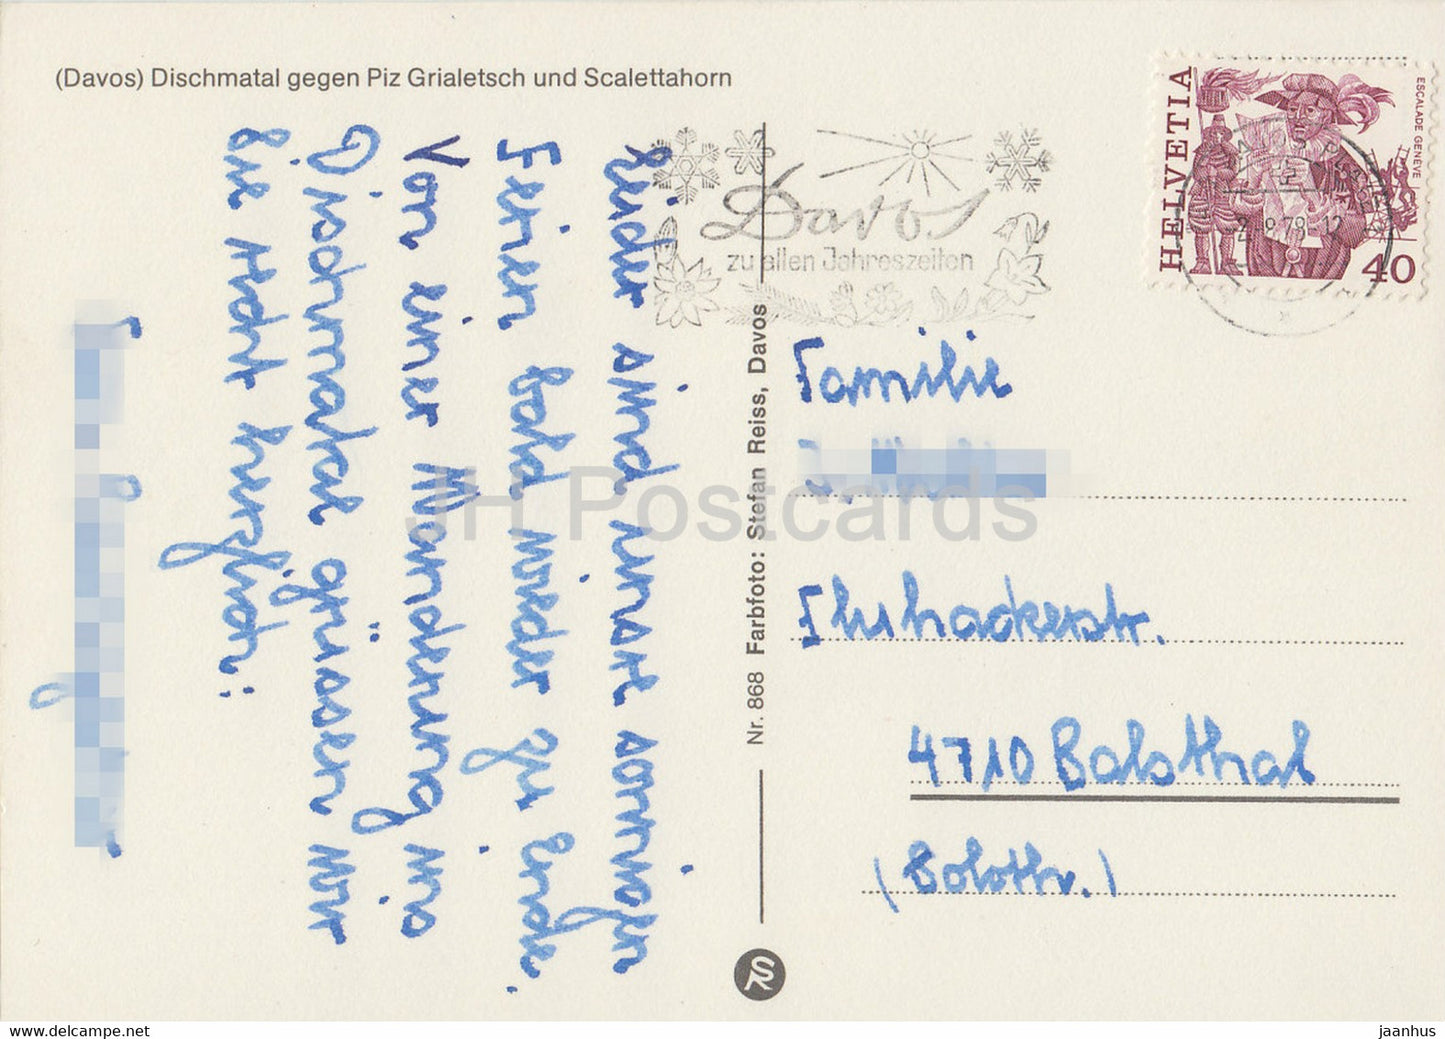 (Davos) Dischmatal gegen Piz Grialetsch und Scalettahorn
Leider sind unsre sonnigen
Ferien bald wieder zu Ende.
Von einer Wanderung ins
Dischmatal grüssen wir
Sie recht herzlich:
Nr. 868 Farbfoto: Stefan Reiss, Davos
Davos
zu allen Jahreszeiten
HELVETIA
ESCALADE GENEVE
40
Familie
4710 Balsthal
JH Postcards
www.delcampe.net
jaanhus